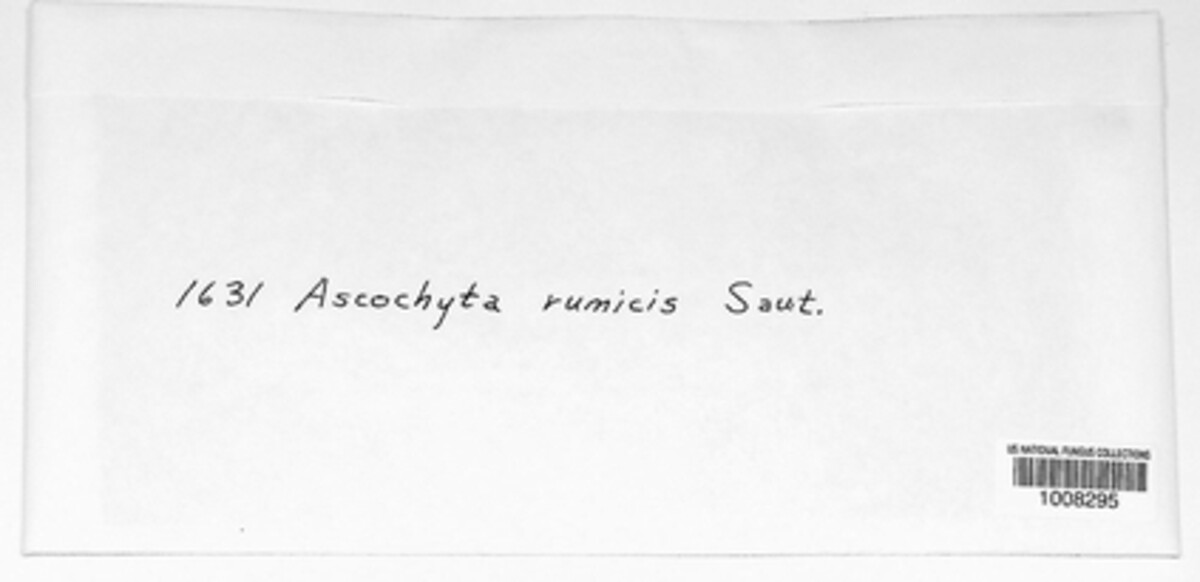 1631 Ascochyta rumicis Saut.
US NATIONAL FUNGUS COLLECTIONS
1008295